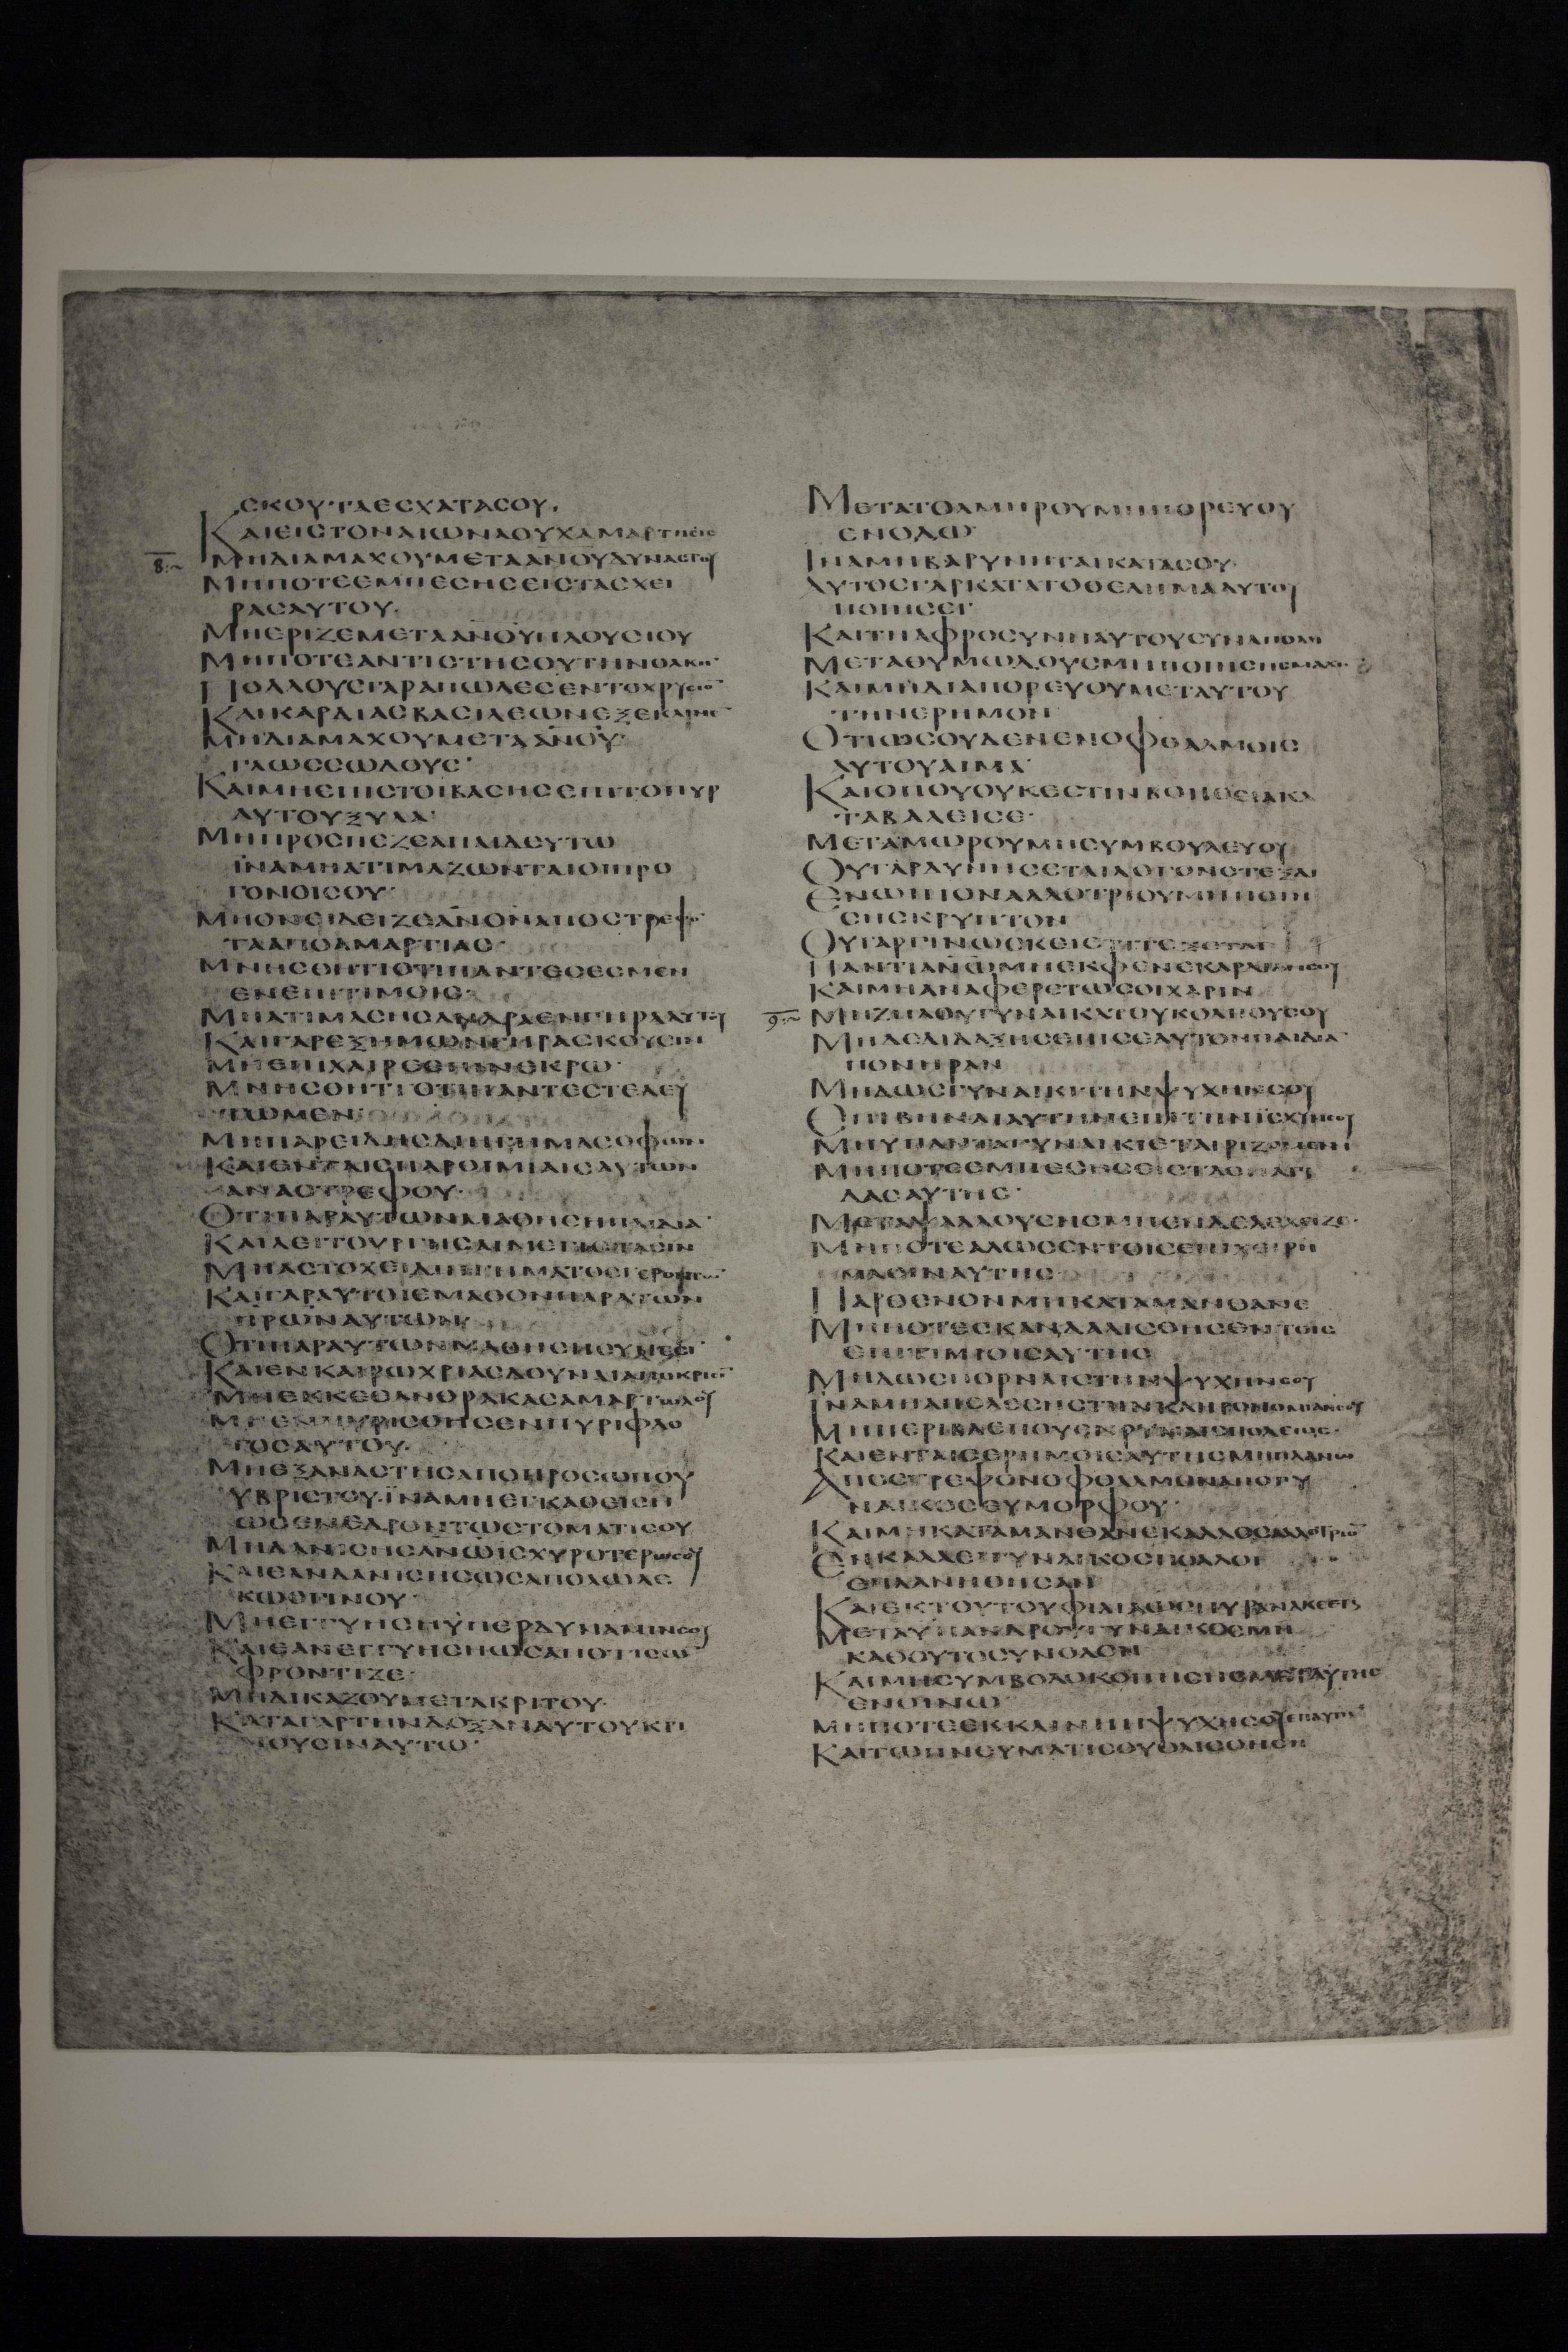 ΣΚΟΥ·ΤΑΕΣΧΑΤΑΣΟΥ.
ΚΑΙΕΙΣΤΟΝΑΙΩΝΑΟΥΧΑΜΑΡΤΗΣΙΣ
8 ΜΗΔΙΑΜΑΧΟΥΜΕΤΑΑΝΟΥΔΥΝΑΣΤΟΥ
ΜΗΠΟΤΕΕΜΠΕΣΗΣΕΙΣΤΑΣΧΕΙ
ΡΑΣΑΥΤΟΥ.
ΜΗΕΡΙΖΕΜΕΤΑΑΝΟΥΠΛΟΥΣΙΟΥ
ΜΗΠΟΤΕΑΝΤΙΣΤΗΣΟΥΤΗΝΟΛΚΗ
ΠΟΛΛΟΥΣΓΑΡΑΠΩΛΕΣΕΝΤΟΧΡΥΣΙΟ
ΚΑΙΚΑΡΔΙΑΣΒΑΣΙΛΕΩΝΕΞΕΚΛΙΝΕ
ΜΗΔΙΑΜΑΧΟΥΜΕΤΑΑΝΟΥ
ΓΛΩΣΣΩΔΟΥΣ·
ΚΑΙΜΗΕΠΙΣΤΟΙΒΑΣΗΣΕΠΙΤΟΠΥΡ
ΑΥΤΟΥΞΥΛΑ·
ΜΗΠΡΟΣΠΕΖΕΑΠΑΙΔΕΥΤΩ
ΪΝΑΜΗΑΤΙΜΑΖΩΝΤΑΙΟΙΠΡΟ
ΓΟΝΟΙΣΟΥ·
ΜΗΟΝΕΙΔΕΙΖΕΑΝΟΝΑΠΟΣΤΡΕΦΟ
ΤΑΑΠΟΑΜΑΡΤΙΑΣ·
ΜΝΗΣΘΗΤΙΟΤΙΠΑΝΤΕΣΕΣΜΕΝ
ΕΝΕΠΙΤΙΜΟΙΣ·
ΜΗΑΤΙΜΑΣΗΣΑΝΔΡΑΕΝΓΗΡΑΑΥΤΟΥ
ΚΑΙΓΑΡΕΞΗΜΩΝΓΗΡΑΣΚΟΥΣΙΝ
ΜΗΕΠΙΧΑΙΡΕΕΠΙΝΕΚΡΩ·
ΜΝΗΣΘΗΤΙΟΤΙΠΑΝΤΕΣΤΕΛΕΥ
ΤΩΜΕΝ
ΜΗΠΑΡΕΙΔΗΣΔΙΗΓΗΜΑΣΟΦΩΝ
ΚΑΙΕΝΤΑΙΣΠΑΡΟΙΜΙΑΙΣΑΥΤΩΝ
ΑΝΑΣΤΡΕΦΟΥ·
ΟΤΙΠΑΡΑΥΤΩΝΜΑΘΗΣΗΠΑΙΔΙΑ
ΚΑΙΛΕΙΤΟΥΡΓΗΣΑΙΜΕΓΙΣΤΑΣΙΝ
ΜΗΑΣΤΟΧΕΙΔΙΗΓΗΜΑΤΟΣΓΕΡΟΝΤΩ
ΚΑΙΓΑΡΑΥΤΟΙΕΜΑΘΟΝΠΑΡΑΤΩΝ
ΠΡΩΝΑΥΤΩΝ
ΟΤΙΠΑΡΑΥΤΩΝΜΑΘΗΣΗΣΥΝΕΣΙ
ΚΑΙΕΝΚΑΙΡΩΧΡΙΑΣΔΟΥΝΑΙΑΠΟΚΡΙΣΙ
ΜΗΕΚΚΕΘΑΝΘΡΑΚΑΣΑΜΑΡΤΩΛΟΥ
ΜΗΕΜΠΥΡΙΣΘΗΣΕΝΠΥΡΙΦΛΟ
ΓΟΣΑΥΤΟΥ·
ΜΗΕΞΑΝΑΣΤΗΣΑΠΟΠΡΟΣΩΠΟΥ
ΥΒΡΙΣΤΟΥ·ΪΝΑΜΗΕΓΚΑΘΕΙΣΗ
ΩΣΕΝΕΔΡΟΝΤΩΣΤΟΜΑΤΙΣΟΥ
ΜΗΔΑΝΙΣΗΣΑΝΩΙΣΧΥΡΟΤΕΡΩΣΟΥ
ΚΑΙΕΑΝΔΑΝΙΣΗΣΩΣΑΠΟΛΩΛΕ
ΚΩΣΓΙΝΟΥ·
ΜΗΕΓΓΥΗΣΗΫΠΕΡΔΥΝΑΜΙΝΣΟΥ
ΚΑΙΕΑΝΕΓΓΥΗΣΗΩΣΑΠΟΤΙΣΩ
ΦΡΟΝΤΙΖΕ·
ΜΗΔΙΚΑΖΟΥΜΕΤΑΚΡΙΤΟΥ·
ΚΑΤΑΓΑΡΤΗΝΔΟΞΑΝΑΥΤΟΥΚΡΙ
ΝΟΥΣΙΝΑΥΤΩ·
ΜΕΤΑΤΟΛΜΗΡΟΥΜΗΠΟΡΕΥΟΥ
ΕΝΟΔΩ·
ΙΝΑΜΗΒΑΡΥΝΗΤΑΙΚΑΤΑΣΟΥ·
ΑΥΤΟΣΓΑΡΚΑΤΑΤΟΘΕΛΗΜΑΑΥΤΟΥ
ΠΟΙΗΣΕΙ·
ΚΑΙΤΗΑΦΡΟΣΥΝΗΑΥΤΟΥΣΥΝΑΠΟΛΗ
ΜΕΤΑΘΥΜΩΔΟΥΣΜΗΠΟΙΗΣΗΣΜΑΧΗ
ΚΑΙΜΗΔΙΑΠΟΡΕΥΟΥΜΕΤΑΥΤΟΥ
ΤΗΝΕΡΗΜΟΝ
ΟΤΙΩΣΟΥΔΕΝΕΝΟΦΘΑΛΜΟΙΣ
ΑΥΤΟΥΑΙΜΑ·
ΚΑΙΟΠΟΥΟΥΚΕΣΤΙΝΒΟΗΘΕΙΑΚΑ
ΤΑΒΑΛΕΙΣΕ·
ΜΕΤΑΜΩΡΟΥΜΗΣΥΜΒΟΥΛΕΥΟΥ
ΟΥΓΑΡΔΥΝΗΣΕΤΑΙΛΟΓΟΝΣΤΕΞΑΙ
ΕΝΩΠΙΟΝΑΛΛΟΤΡΙΟΥΜΗΠΟΙΗ
ΣΗΣΚΡΥΠΤΟΝ
ΟΥΓΑΡΓΙΝΩΣΚΕΙΣΤΙΤΕΞΕΤΑΙ
ΠΑΝΤΙΑΝΩΜΗΕΚΦΕΝΕΚΑΡΔΙΑΝΣΟΥ
ΚΑΙΜΗΑΝΑΦΕΡΕΤΩΣΟΙΧΑΡΙΝ
9 ΜΗΖΗΛΟΥΓΥΝΑΙΚΑΤΟΥΚΟΛΠΟΥΣΟΥ
ΜΗΔΕΔΙΔΑΞΗΣΕΠΙΣΕΑΥΤΟΝΠΑΙΔΙΑ
ΠΟΝΗΡΑΝ
ΜΗΔΩΣΓΥΝΑΙΚΙΤΗΝΨΥΧΗΝΣΟΥ
ΕΠΙΒΗΝΑΙΑΥΤΗΝΕΠΙΤΗΝΪΣΧΥΝΣΟΥ
ΜΗΥΠΑΝΤΑΓΥΝΑΙΚΙΕΤΑΙΡΙΖΟΜΕΝΗ
ΜΗΠΟΤΕΕΜΠΕΣΗΣΕΙΣΤΑΣΠΑΓΙ
ΔΑΣΑΥΤΗΣ·
ΜΕΤΑΨΑΛΛΟΥΣΗΣΜΗΕΝΔΕΛΕΧΙΖΕ·
ΜΗΠΟΤΕΑΛΩΣΕΝΤΟΙΣΕΠΙΧΕΙΡΗ
ΜΑΣΙΝΑΥΤΗΣ
ΠΑΡΘΕΝΟΝΜΗΚΑΤΑΜΑΝΘΑΝΕ
ΜΗΠΟΤΕΣΚΑΝΔΑΛΙΣΘΗΣΕΝΤΟΙΣ
ΕΠΙΤΙΜΙΟΙΣΑΥΤΗΣ
ΜΗΔΩΣΠΟΡΝΑΙΣΤΗΝΨΥΧΗΝΣΟΥ
ΙΝΑΜΗΑΠΟΛΕΣΗΣΤΗΝΚΛΗΡΟΝΟΜΙΑΝΣΟΥ
ΜΗΠΕΡΙΒΛΕΠΟΥΕΝΡΥΜΑΙΣΠΟΛΕΩΣ·
ΚΑΙΕΝΤΑΙΣΕΡΗΜΟΙΣΑΥΤΗΣΜΗΠΛΑΝΩ
ΑΠΟΣΤΡΕΨΟΝΟΦΘΑΛΜΟΝΑΠΟΓΥ
ΝΑΙΚΟΣΕΥΜΟΡΦΟΥ·
ΚΑΙΜΗΚΑΤΑΜΑΝΘΑΝΕΚΑΛΛΟΣΑΛΛΟΤΡΙΟ
ΕΝΚΑΛΛΕΙΓΥΝΑΙΚΟΣΠΟΛΛΟΙ
ΕΠΛΑΝΗΘΗΣΑΝ
ΚΑΙΕΚΤΟΥΤΟΥΦΙΛΙΑΩΣΠΥΡΑΝΑΚΕΤΕ
ΜΕΤΑΥΠΑΝΔΡΟΥΓΥΝΑΙΚΟΣΜΗ
ΚΑΘΟΥΤΟΣΥΝΟΛΟΝ
ΚΑΙΜΗΣΥΜΒΟΛΟΚΟΠΗΣΗΣΜΕΤΑΥΤΗΣ
ΕΝΟΙΝΩ·
ΜΗΠΟΤΕΕΚΚΛΙΝΗΗΨΥΧΗΣΟΥΕΠΑΥΤΗ
ΚΑΙΤΩΠΝΕΥΜΑΤΙΣΟΥΟΛΙΣΘΗΣΗ